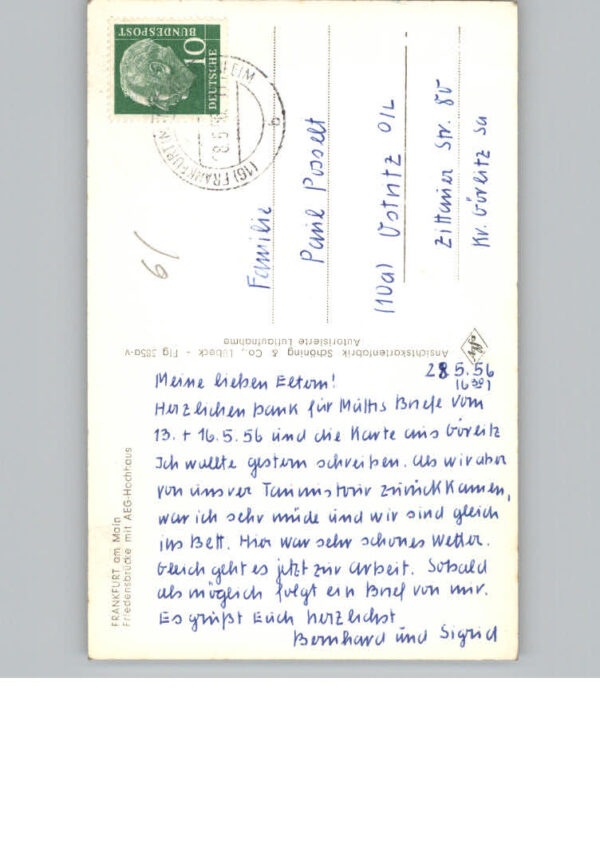 10
DEUTSCHE
BUNDESPOST
(16) FRANKFURT
28.5.56
g
6/
Familie
Paul Posselt
(10a) Ostritz O/L
Zittauer Str. 80
Kr. Görlitz Sa
Ansichtskartenfabrik Schöning & Co., Lübeck - Flg 385a-v
Autorisierte Luftaufnahme
FRANKFURT am Main
Friedensbrücke mit AEG-Hochhaus
28.5.56
Meine lieben Eltern!
Herzlichen Dank für Muttis Briefe vom
13. + 16.5.56 und die Karte aus Görlitz
Ich wollte gestern schreiben. Als wir aber
von unsrer Taunustour zurückkamen,
war ich sehr müde und wir sind gleich
ins Bett. Hier war sehr schönes Wetter.
Gleich geht es jetzt zur Arbeit. Sobald
als möglich folgt ein Brief von mir.
Es grüßt Euch herzlichst
Bernhard und Sigrid